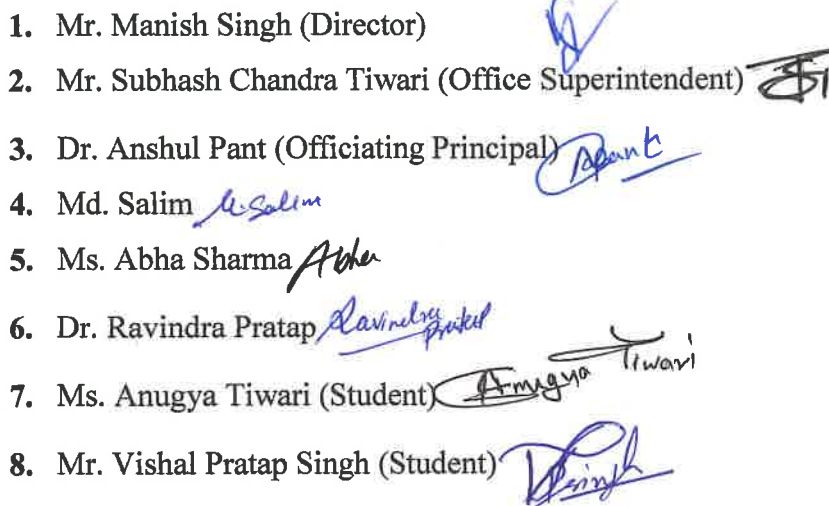 1. Mr. Manish Singh (Director)
2. Mr. Subhash Chandra Tiwari (Office Superintendent)
3. Dr. Anshul Pant (Officiating Principal) Apant
4. Md. Salim M. Salim
5. Ms. Abha Sharma Abha
6. Dr. Ravindra Pratap Ravindra Pratap
7. Ms. Anugya Tiwari (Student) Anugya Tiwari
8. Mr. Vishal Pratap Singh (Student) VPSingh